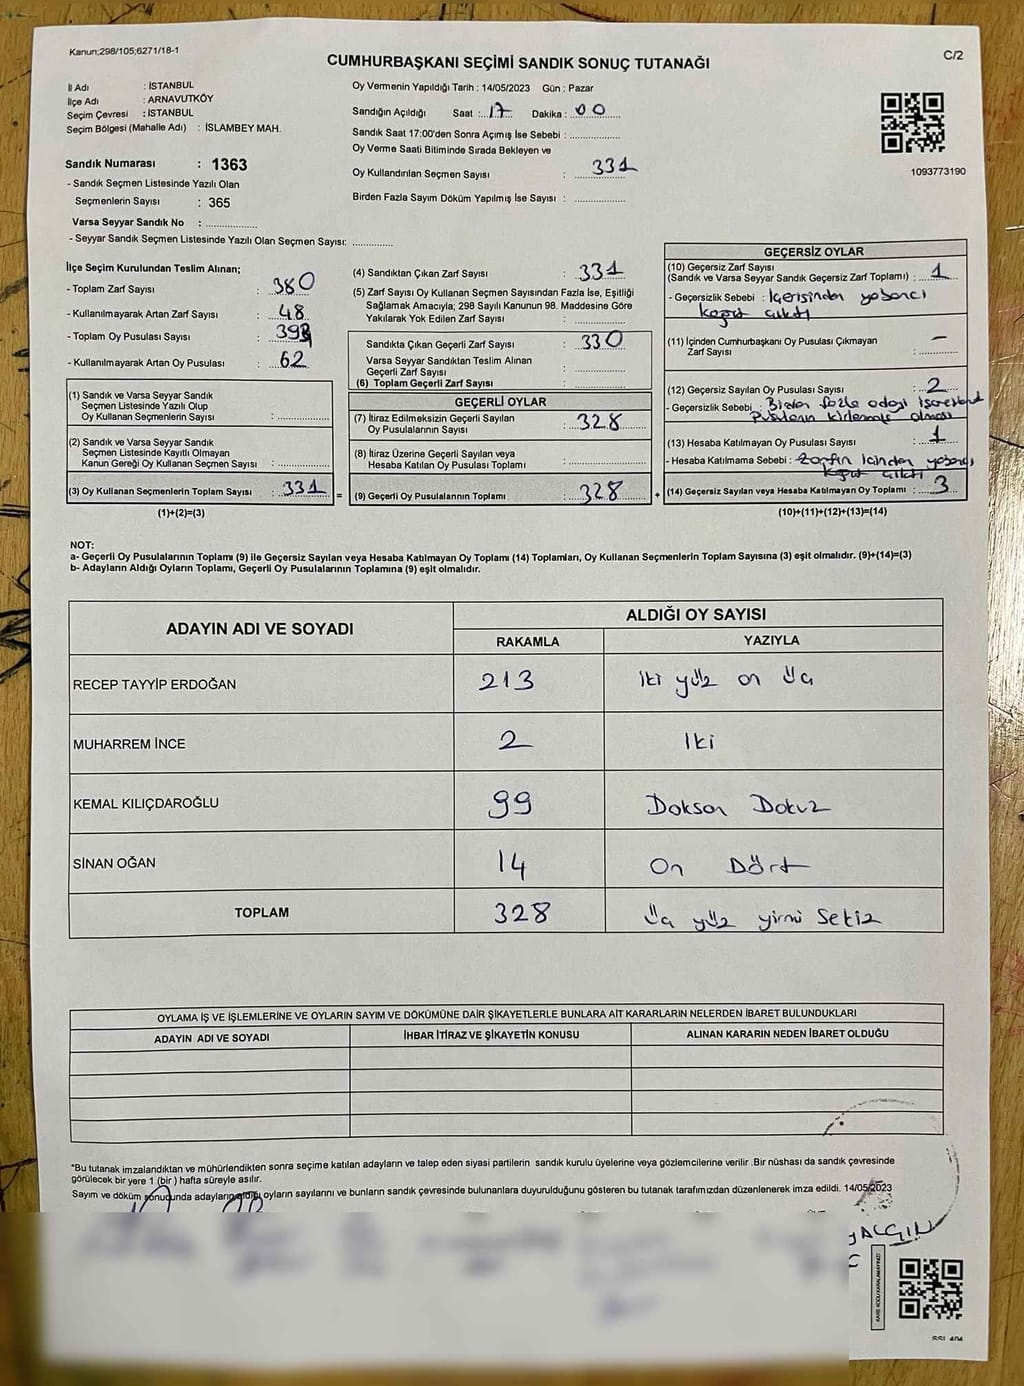 Kanun;298/105;6271/18-1
C/2
CUMHURBAŞKANI SEÇİMİ SANDIK SONUÇ TUTANAĞI
İl Adı : İSTANBUL
İlçe Adı : ARNAVUTKÖY
Seçim Çevresi : İSTANBUL
Seçim Bölgesi (Mahalle Adı) : İSLAMBEY MAH.
Sandık Numarası : 1363
- Sandık Seçmen Listesinde Yazılı Olan
Seçmenlerin Sayısı : 365
Varsa Seyyar Sandık No :
- Seyyar Sandık Seçmen Listesinde Yazılı Olan Seçmen Sayısı:
Oy Vermenin Yapıldığı Tarih : 14/05/2023 Gün : Pazar
Sandığın Açıldığı Saat : 17 Dakika : 00
Sandık Saat 17:00'den Sonra Açımış İse Sebebi :
Oy Verme Saati Bitiminde Sırada Bekleyen ve
Oy Kullandırılan Seçmen Sayısı : 331
Birden Fazla Sayım Döküm Yapılmış İse Sayısı :
1093773190
İlçe Seçim Kurulundan Teslim Alınan;
- Toplam Zarf Sayısı : 380
- Kullanılmayarak Artan Zarf Sayısı : 48
- Toplam Oy Pusulası Sayısı : 393
- Kullanılmayarak Artan Oy Pusulası : 62
(1) Sandık ve Varsa Seyyar Sandık
Seçmen Listesinde Yazılı Olup
Oy Kullanan Seçmenlerin Sayısı :
(2) Sandık ve Varsa Seyyar Sandık
Seçmen Listesinde Kayıtlı Olmayan
Kanun Gereği Oy Kullanan Seçmen Sayısı :
(3) Oy Kullanan Seçmenlerin Toplam Sayısı : 331 =
(1)+(2)=(3)
(4) Sandıktan Çıkan Zarf Sayısı : 331
(5) Zarf Sayısı Oy Kullanan Seçmen Sayısından Fazla İse, Eşitliği
Sağlamak Amacıyla; 298 Sayılı Kanunun 98. Maddesine Göre
Yakılarak Yok Edilen Zarf Sayısı :
Sandıkta Çıkan Geçerli Zarf Sayısı : 330
Varsa Seyyar Sandıktan Teslim Alınan
Geçerli Zarf Sayısı :
(6) Toplam Geçerli Zarf Sayısı :
GEÇERLİ OYLAR
(7) İtiraz Edilmeksizin Geçerli Sayılan
Oy Pusulalarının Sayısı : 328
(8) İtiraz Üzerine Geçerli Sayılan veya
Hesaba Katılan Oy Pusulası Toplamı :
(9) Geçerli Oy Pusulalarının Toplamı : 328 +
GEÇERSİZ OYLAR
(10) Geçersiz Zarf Sayısı
(Sandık ve Varsa Seyyar Sandık Geçersiz Zarf Toplamı) : 1
- Geçersizlik Sebebi : İçerisinden yabancı
kağıt çıktı
(11) İçinden Cumhurbaşkanı Oy Pusulası Çıkmayan
Zarf Sayısı : -
(12) Geçersiz Sayılan Oy Pusulası Sayısı : 2
- Geçersizlik Sebebi : Birden fazla adayı
olması
(13) Hesaba Katılmayan Oy Pusulası Sayısı : 1
- Hesaba Katılmama Sebebi : Zarfın içinden yabancı
kağıt çıktı
(14) Geçersiz Sayılan veya Hesaba Katılmayan Oy Toplamı : 3
(10)+(11)+(12)+(13)=(14)
NOT:
a- Geçerli Oy Pusulalarının Toplamı (9) ile Geçersiz Sayılan veya Hesaba Katılmayan Oy Toplamı (14) Toplamları, Oy Kullanan Seçmenlerin Toplam Sayısına (3) eşit olmalıdır. (9)+(14)=(3)
b- Adayların Aldığı Oyların Toplamı, Geçerli Oy Pusulalarının Toplamına (9) eşit olmalıdır.
ADAYIN ADI VE SOYADI
ALDIĞI OY SAYISI
RAKAMLA YAZIYLA
RECEP TAYYİP ERDOĞAN 213 İki yüz on üç
MUHARREM İNCE 2 İki
KEMAL KILIÇDAROĞLU 99 Doksan Dokuz
SİNAN OĞAN 14 On Dört
TOPLAM 328 Üç yüz yirmi Sekiz
OYLAMA İŞ VE İŞLEMLERİNE VE OYLARIN SAYIM VE DÖKÜMÜNE DAİR ŞİKAYETLERLE BUNLARA AİT KARARLARIN NELERDEN İBARET BULUNDUKLARI
ADAYIN ADI VE SOYADI İHBAR İTİRAZ VE ŞİKAYETİN KONUSU ALINAN KARARIN NEDEN İBARET OLDUĞU
*Bu tutanak imzalandıktan ve mühürlendikten sonra seçime katılan adayların ve talep eden siyasi partilerin sandık kurulu üyelerine veya gözlemcilerine verilir .Bir nüshası da sandık çevresinde
görülecek bir yere 1 (bir ) hafta süreyle asılır.
Sayım ve döküm sonucunda adayların aldığı oyların sayılarını ve bunların sandık çevresinde bulunanlara duyurulduğunu gösteren bu tutanak tarafımızdan düzenlenerek imza edildi. 14/05/2023
YALÇIN
KARE KODU KARALAMAYINIZ!